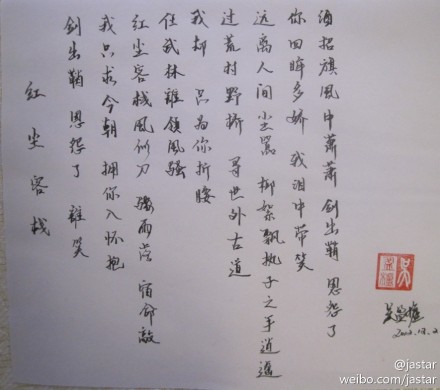 酒招旗风中萧萧 剑出鞘 恩怨了
你回眸多娇 我泪中带笑
远离人间尘嚣 柳絮飘执子之手逍遥
过荒村野桥 寻世外古道
我却 只为你折腰
任武林谁领风骚
红尘客栈风似刀 骤雨落 宿命敲
我只求今朝 拥你入怀抱
剑出鞘 恩怨了 谁笑
红尘客栈
@jastar
weibo.com/jastar